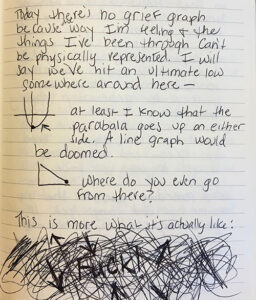 Today there's no grief graph
because way I'm feeling & the
things I've been through can't
be physically represented. I will
say we've hit an ultimate low
somewhere around here—
at least I know that the
parabala goes up on either
side. A line graph would
be doomed.
where do you even go
from there?
This is more what it's actually like:
Fuck!